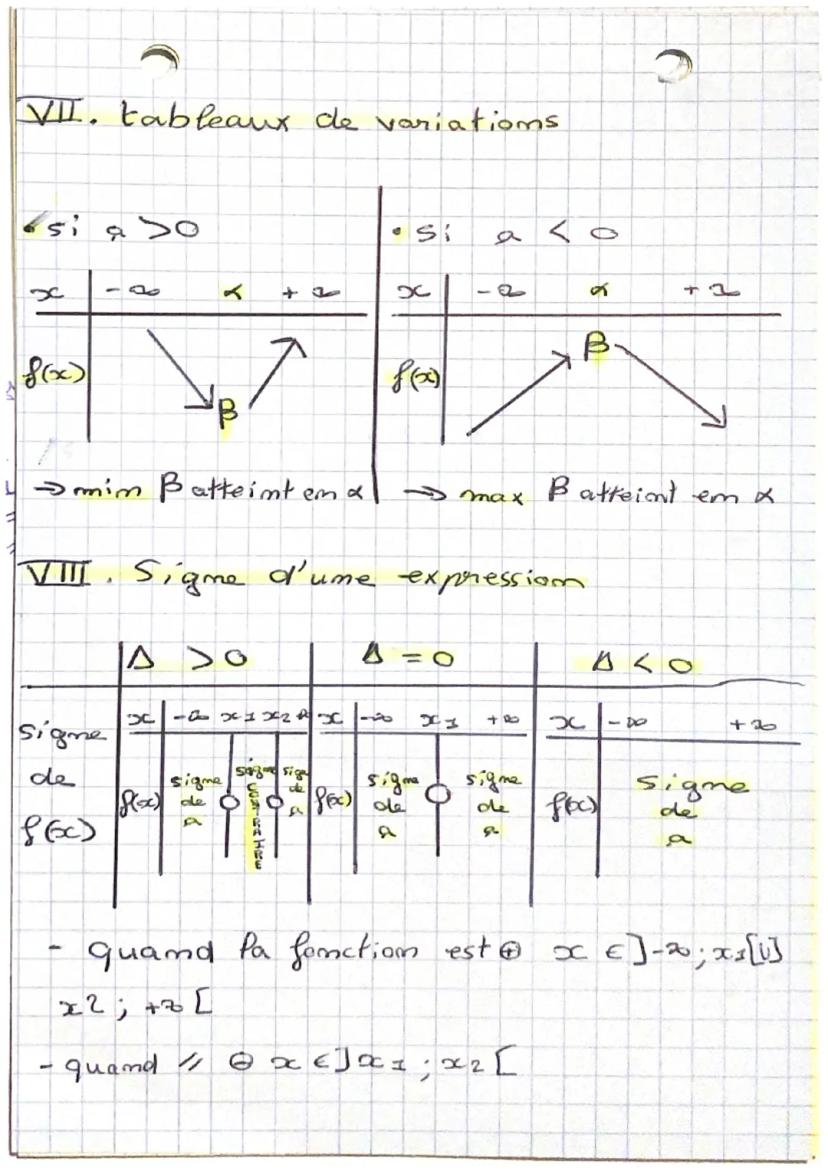 VII. tableaux de variations
• si a > 0
x -∞ α +∞
f(x) β
→ min β atteint en α
• si a < 0
x -∞ α +∞
f(x) β
→ max β atteint en α
VIII. Signe d'une expression
Δ > 0 Δ = 0 Δ < 0
signe de f(x)
x -∞ x1 x2
f(x) signe de a 0 signe CONTRAIRE 0 signe de a
x -∞ x1 +∞
f(x) signe de a 0 signe de a
x -∞ +∞
f(x) signe de a
- quand la fonction est ⊕ x ∈ ]-∞; x1[U]
x2; +∞[
- quand // ⊖ x ∈ ]x1; x2[